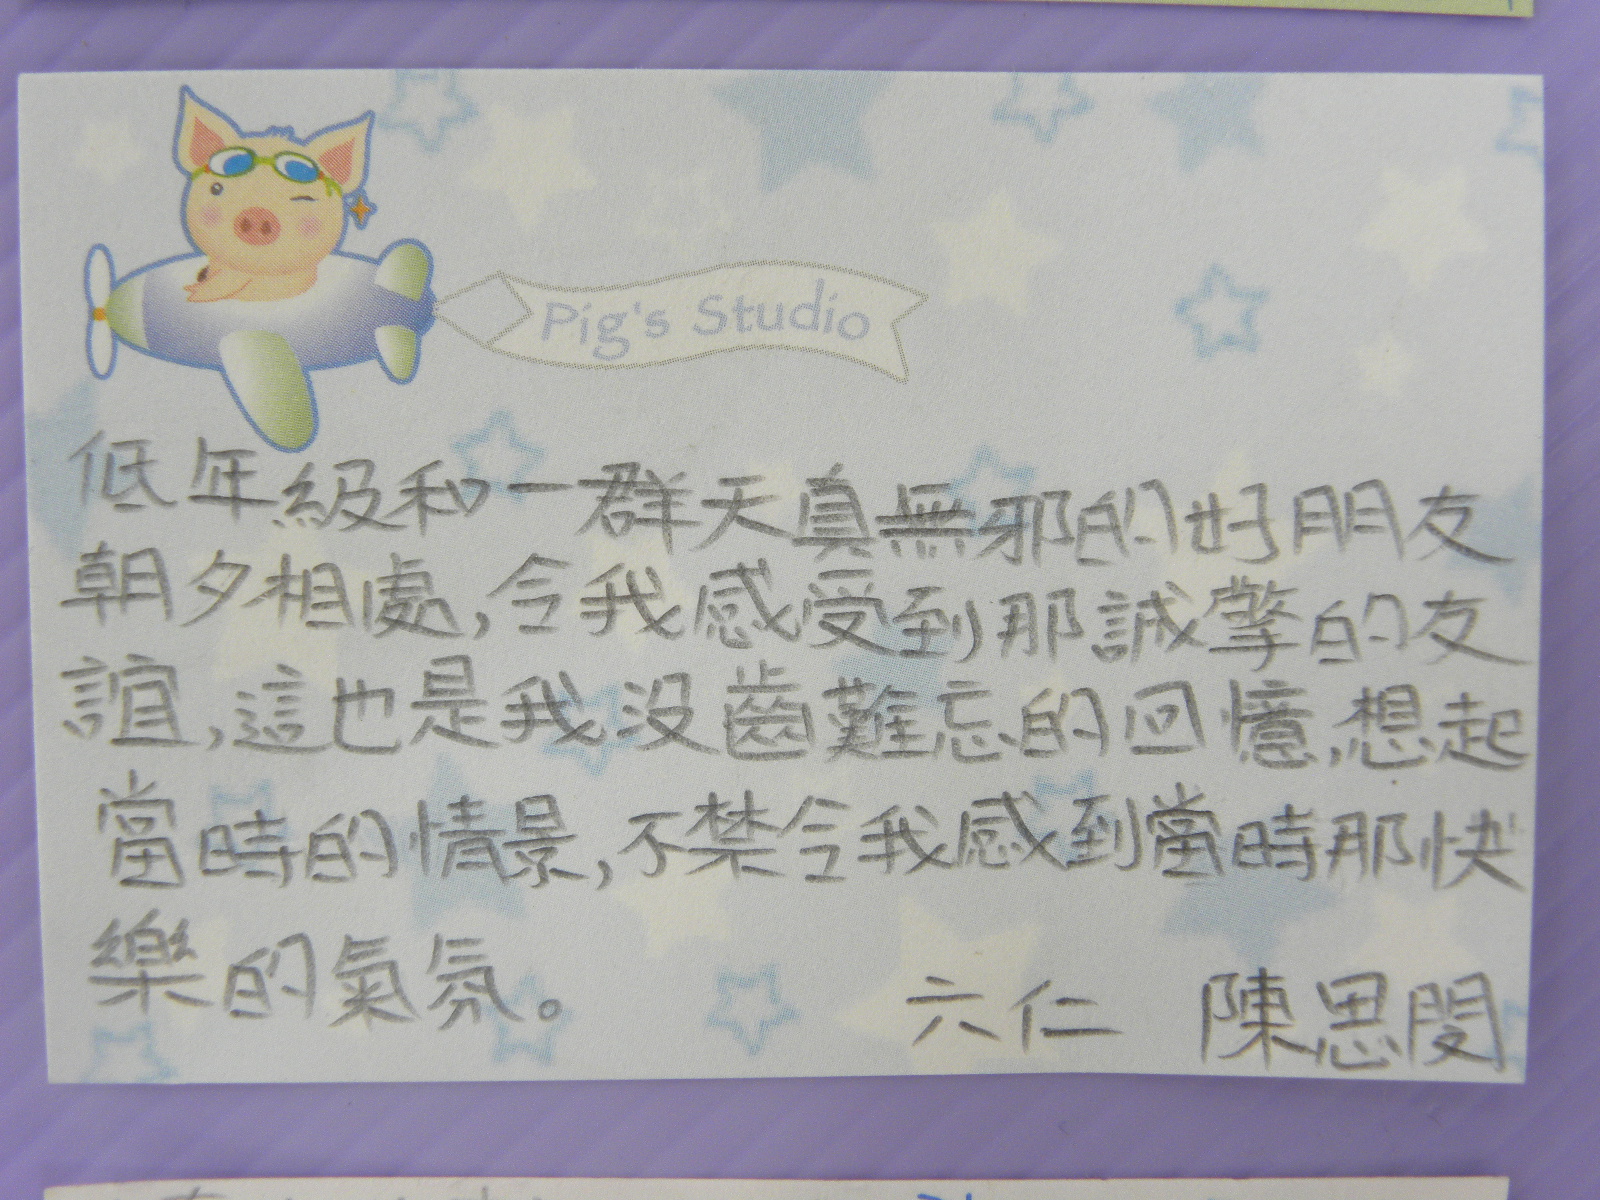 Pig's Studio
低年級和一群天真無邪的好朋友
朝夕相處,令我感受到那誠摯的友
誼,這也是我沒齒難忘的回憶,想起
當時的情景,不禁令我感到當時那快
樂的氣氛。
六仁 陳思閔